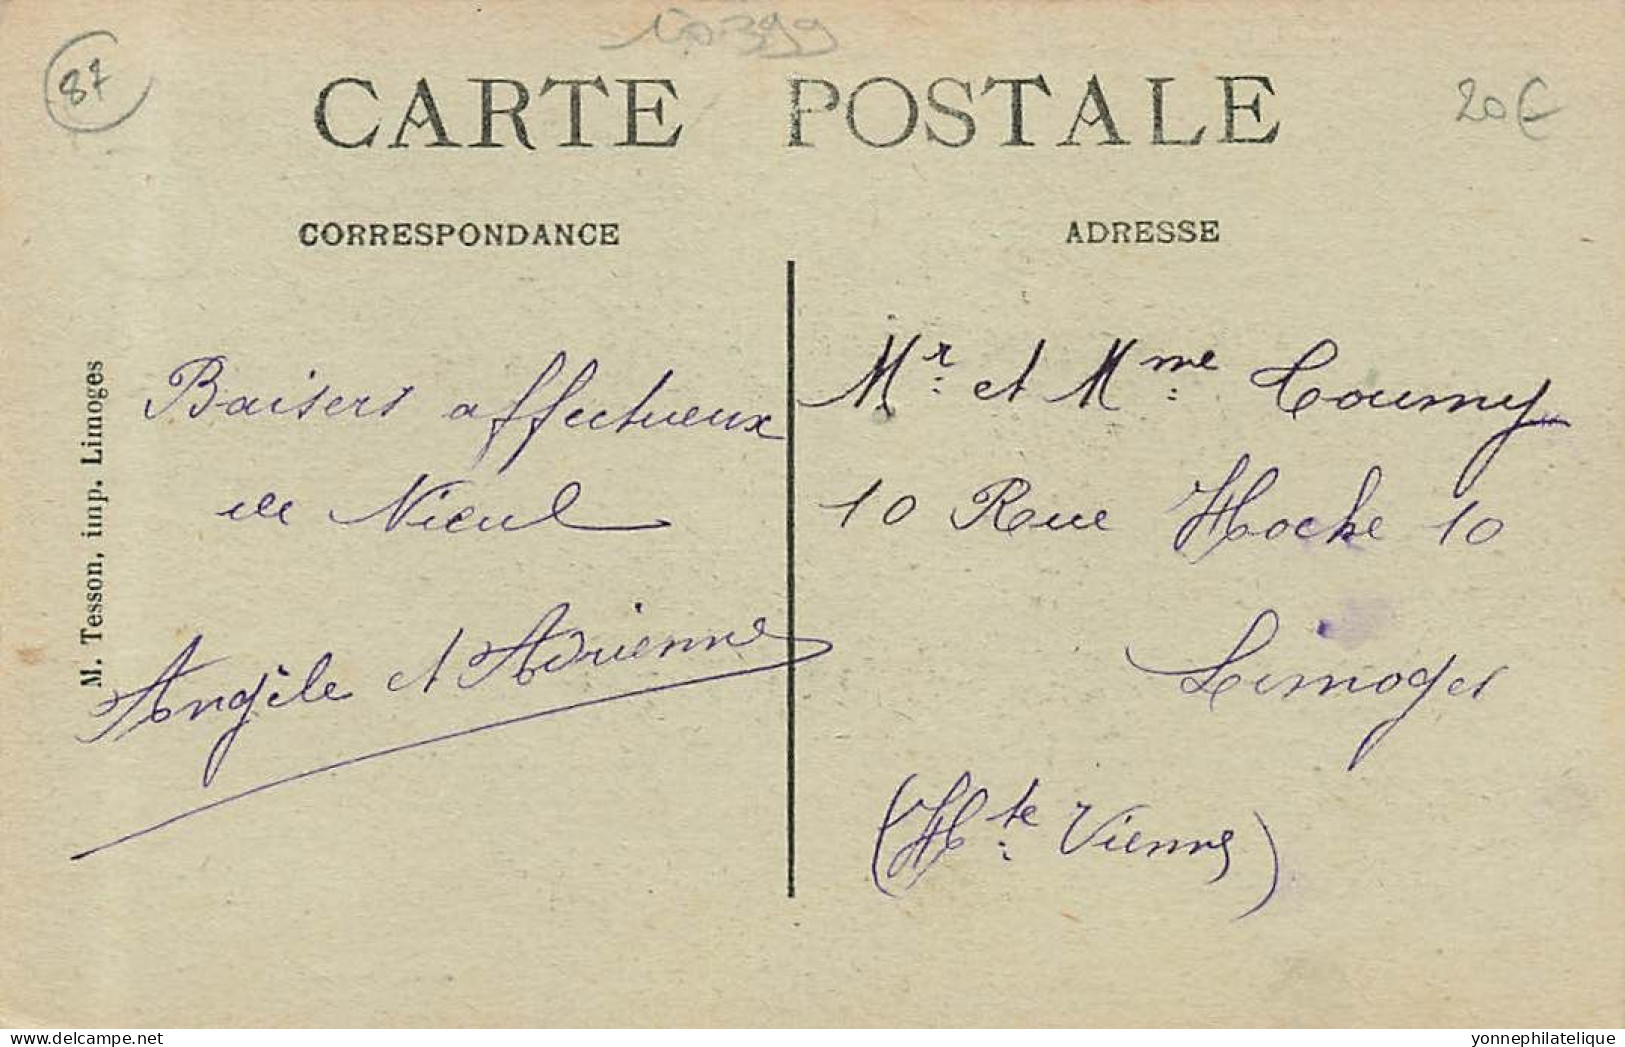 87
CARTE POSTALE
20€
CORRESPONDANCE
ADRESSE
M. Tesson, imp. Limoges
Baisers affectueux
de Nieul
Angèle et Adrienne
Mr. et Mme Coumy
10 Rue Hoche 10
Limoges
(Hte Vienne)
delcampe.net
yonnephilatelique